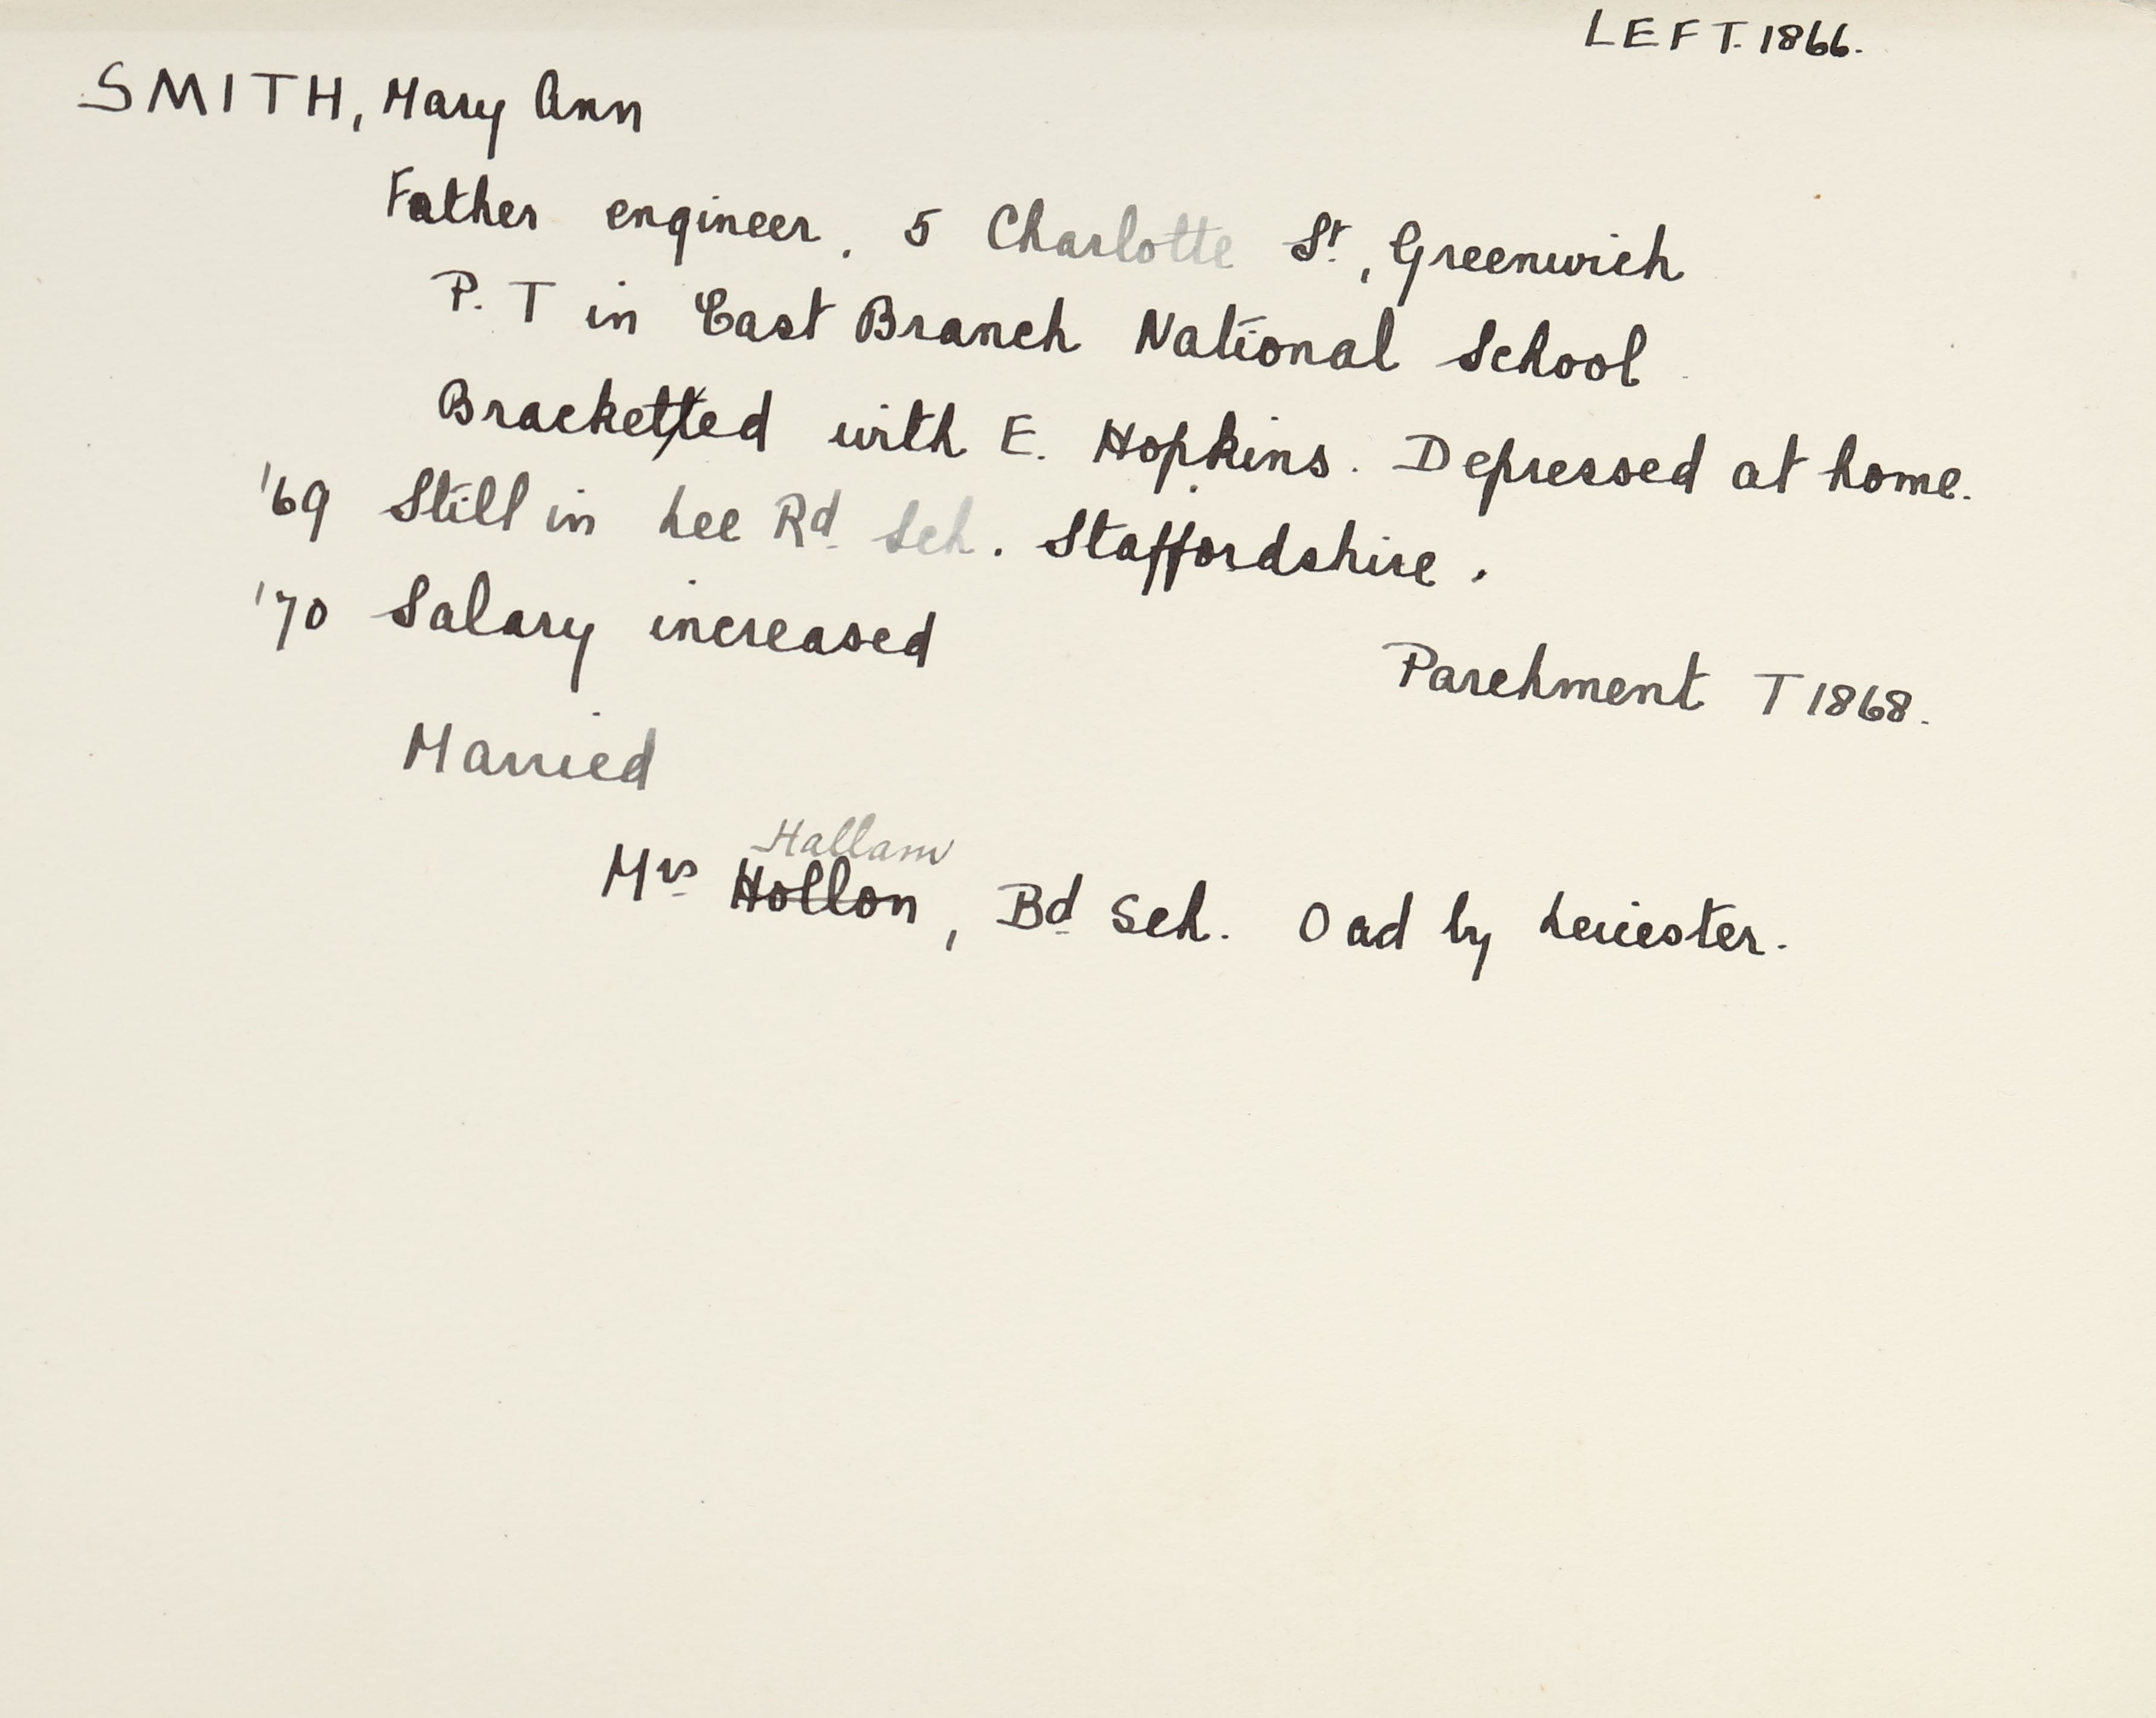 LEFT. 1866.
SMITH, Mary Ann
Father engineer. 5 Charlotte St, Greenwich
P. T in East Branch National School
Bracketted with E. Hopkins. Depressed at home.
'69 Still in Lee Rd Sch. Staffordshire.
'70 Salary increased
Parchment T 1868.
Married
Hallam
Mrs Hollon, Bd Sch. Oadby Leicester.